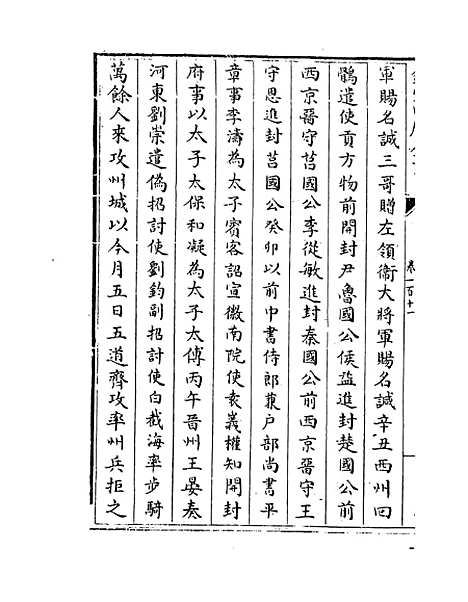 卷一百十一
軍賜名誠三哥贈左領衛大將軍賜名誠辛丑西州回
鶻遣使貢方物前開封尹魯國公侯益進封楚國公前
西京留守莒國公李從敏進封秦國公前西京留守王
守恩進封莒國公癸卯以前中書侍郎兼户部尚書平
章事李濤為太子賓客詔宣徽南院使袁義權知開封
府事以太子太保和凝為太子太傅丙午晉州王晏奏
河東劉崇遣偽招討使劉鈞副招討使白截海率步騎
萬餘人來攻州城以今月五日五道齊攻率州兵拒之